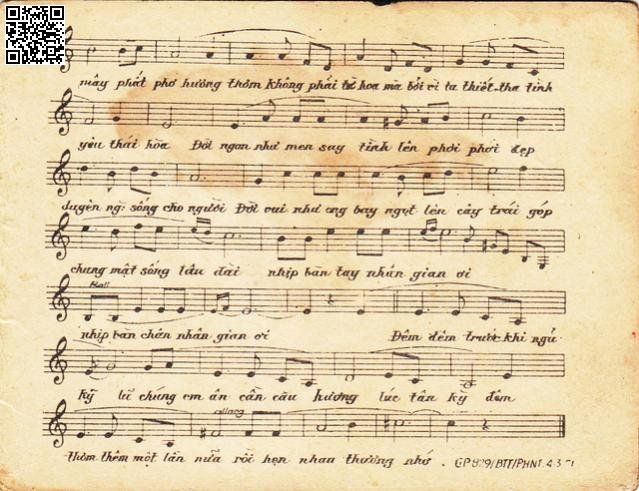 mây phất phơ hương thơm không phải từ hoa mà bởi vì ta thiết tha tình
yêu thái hòa Đời ngon như men say tình lên phơi phới đẹp
duyên người sống cho người Đời vui như ong bay ngọt lên cây trái góp
chung mật sống lâu dài nhịp bàn tay nhân gian ơi
Rall
nhịp bàn chân nhân gian ơi Đêm đêm trước khi ngủ
kỹ lữ chúng em ân cần câu hương lúc tân kỳ đêm
rallang
thơm thêm một lần nữa rồi hẹn nhau thương nhớ . GP 899/BTT/PHNT 4 3 71